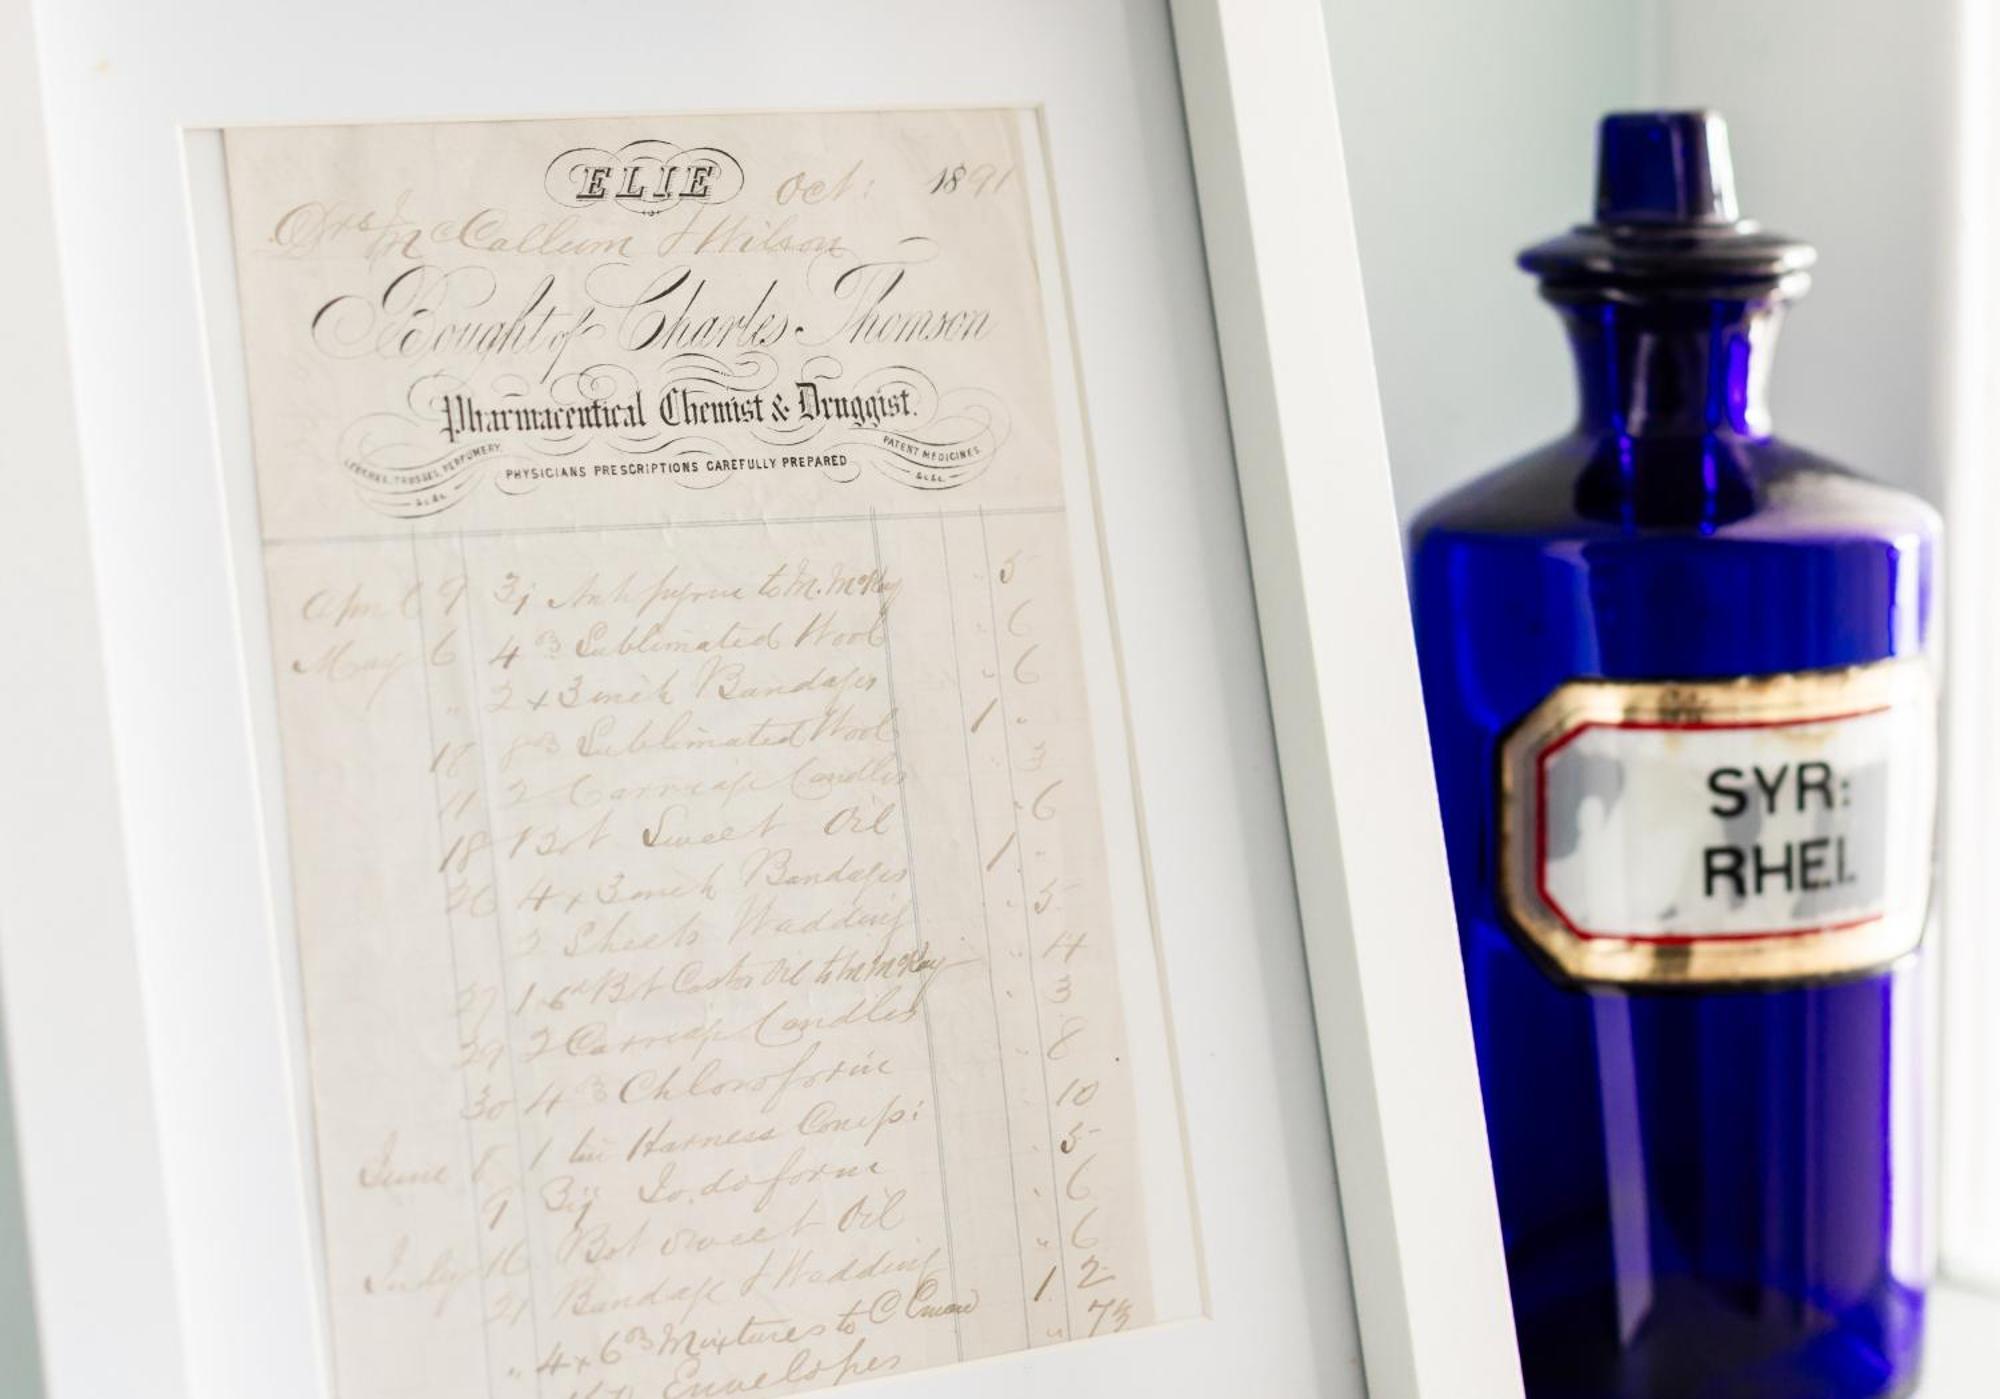 ELIE Oct: 1891
Drs McCallum & Wilson
Bought of Charles Thomson
Pharmaceutical Chemist & Druggist.
LEECHES, TRUSSES, PERFUMERY, &c. &c.
PHYSICIANS PRESCRIPTIONS CAREFULLY PREPARED
PATENT MEDICINES, &c. &c.
April 9 ʒj Antipyrine to M. McKay " 5
May 6 4 ℥ Sublimated Wool " 6
" 2 x 3 inch Bandages " 6
18 8 ℥ Sublimated Wool 1 "
11 2 Carriage Candles " 3
18 1 Bot Sweet Oil " 6
26 4 x 3 inch Bandages 1 "
2 Sheets Wadding " 5
27 1 6d Bt Castor Oil to M McKay " 4
29 2 Carriage Candles " 3
30 4 ℥ Chloroform " 8
June 8 1 tin Harness Compo: 10
9 ʒij Iodoform " 5
July 16 Bot Sweet Oil " 6
21 Bandage & Wadding " 6
" 4 x 6 ℥ Mixtures to C 1 2
Envelopes " 7½
SYR:
RHEI.